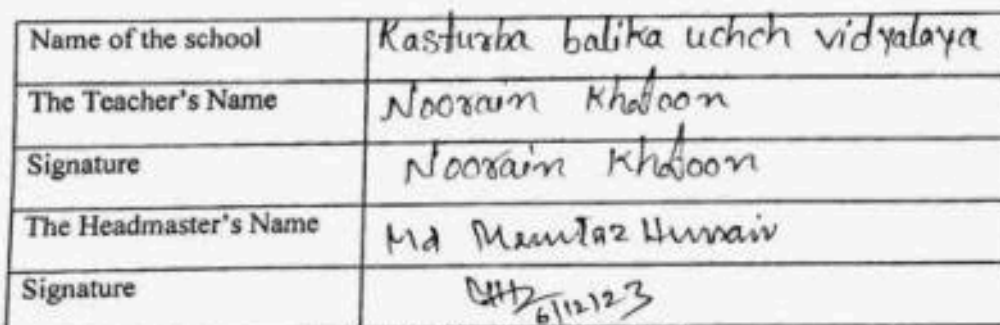 Name of the school Kasturba balika uchch vidyalaya
The Teacher's Name Noorain Khatoon
Signature Noorain Khatoon
The Headmaster's Name Md Memtaz Hussain
Signature 6/12/23